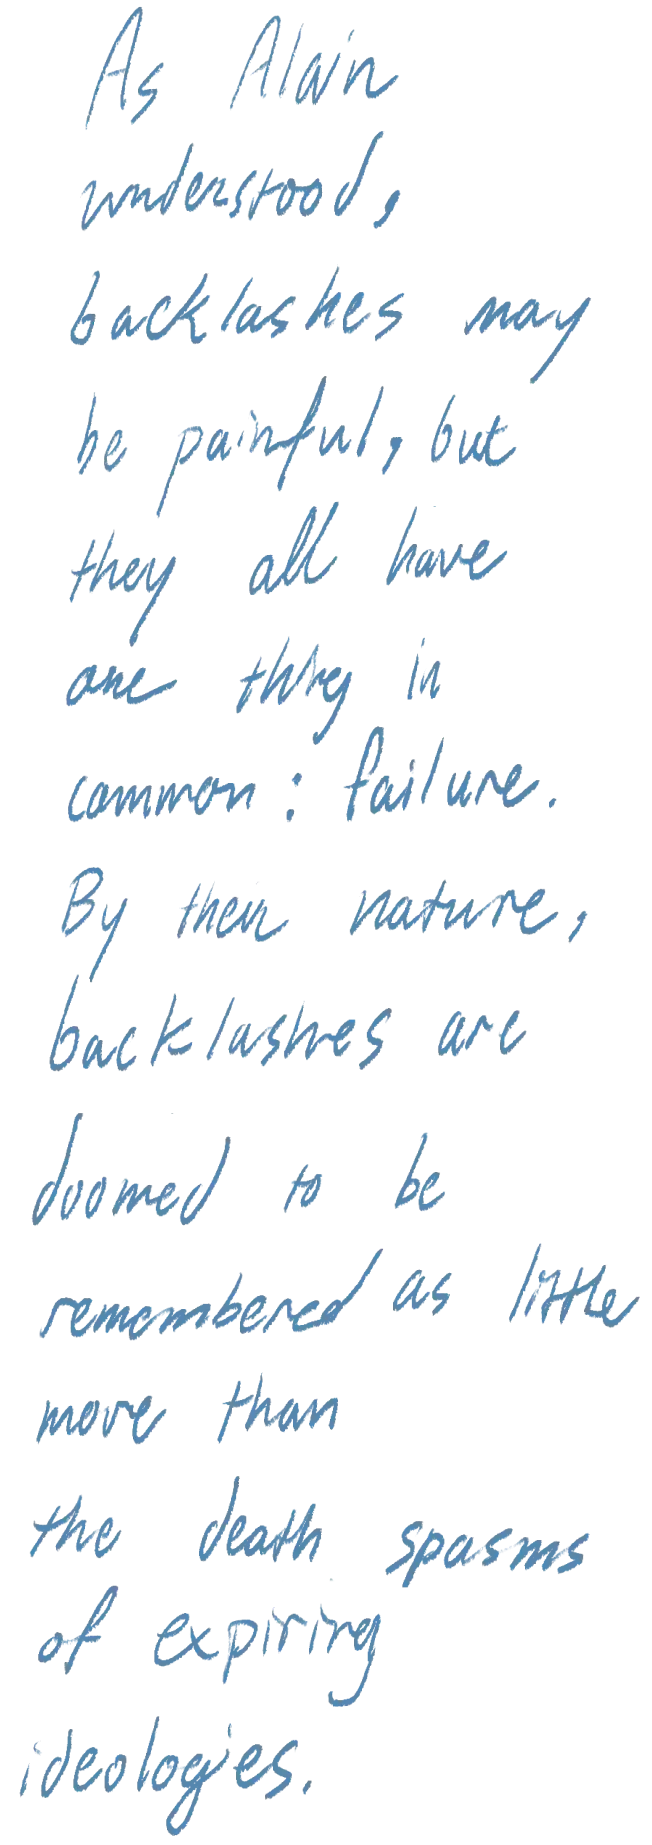 As Alain
understood,
backlashes may
be painful, but
they all have
one thing in
common: failure.
By their nature,
backlashes are
doomed to be
remembered as little
more than
the death spasms
of expiring
ideologies.